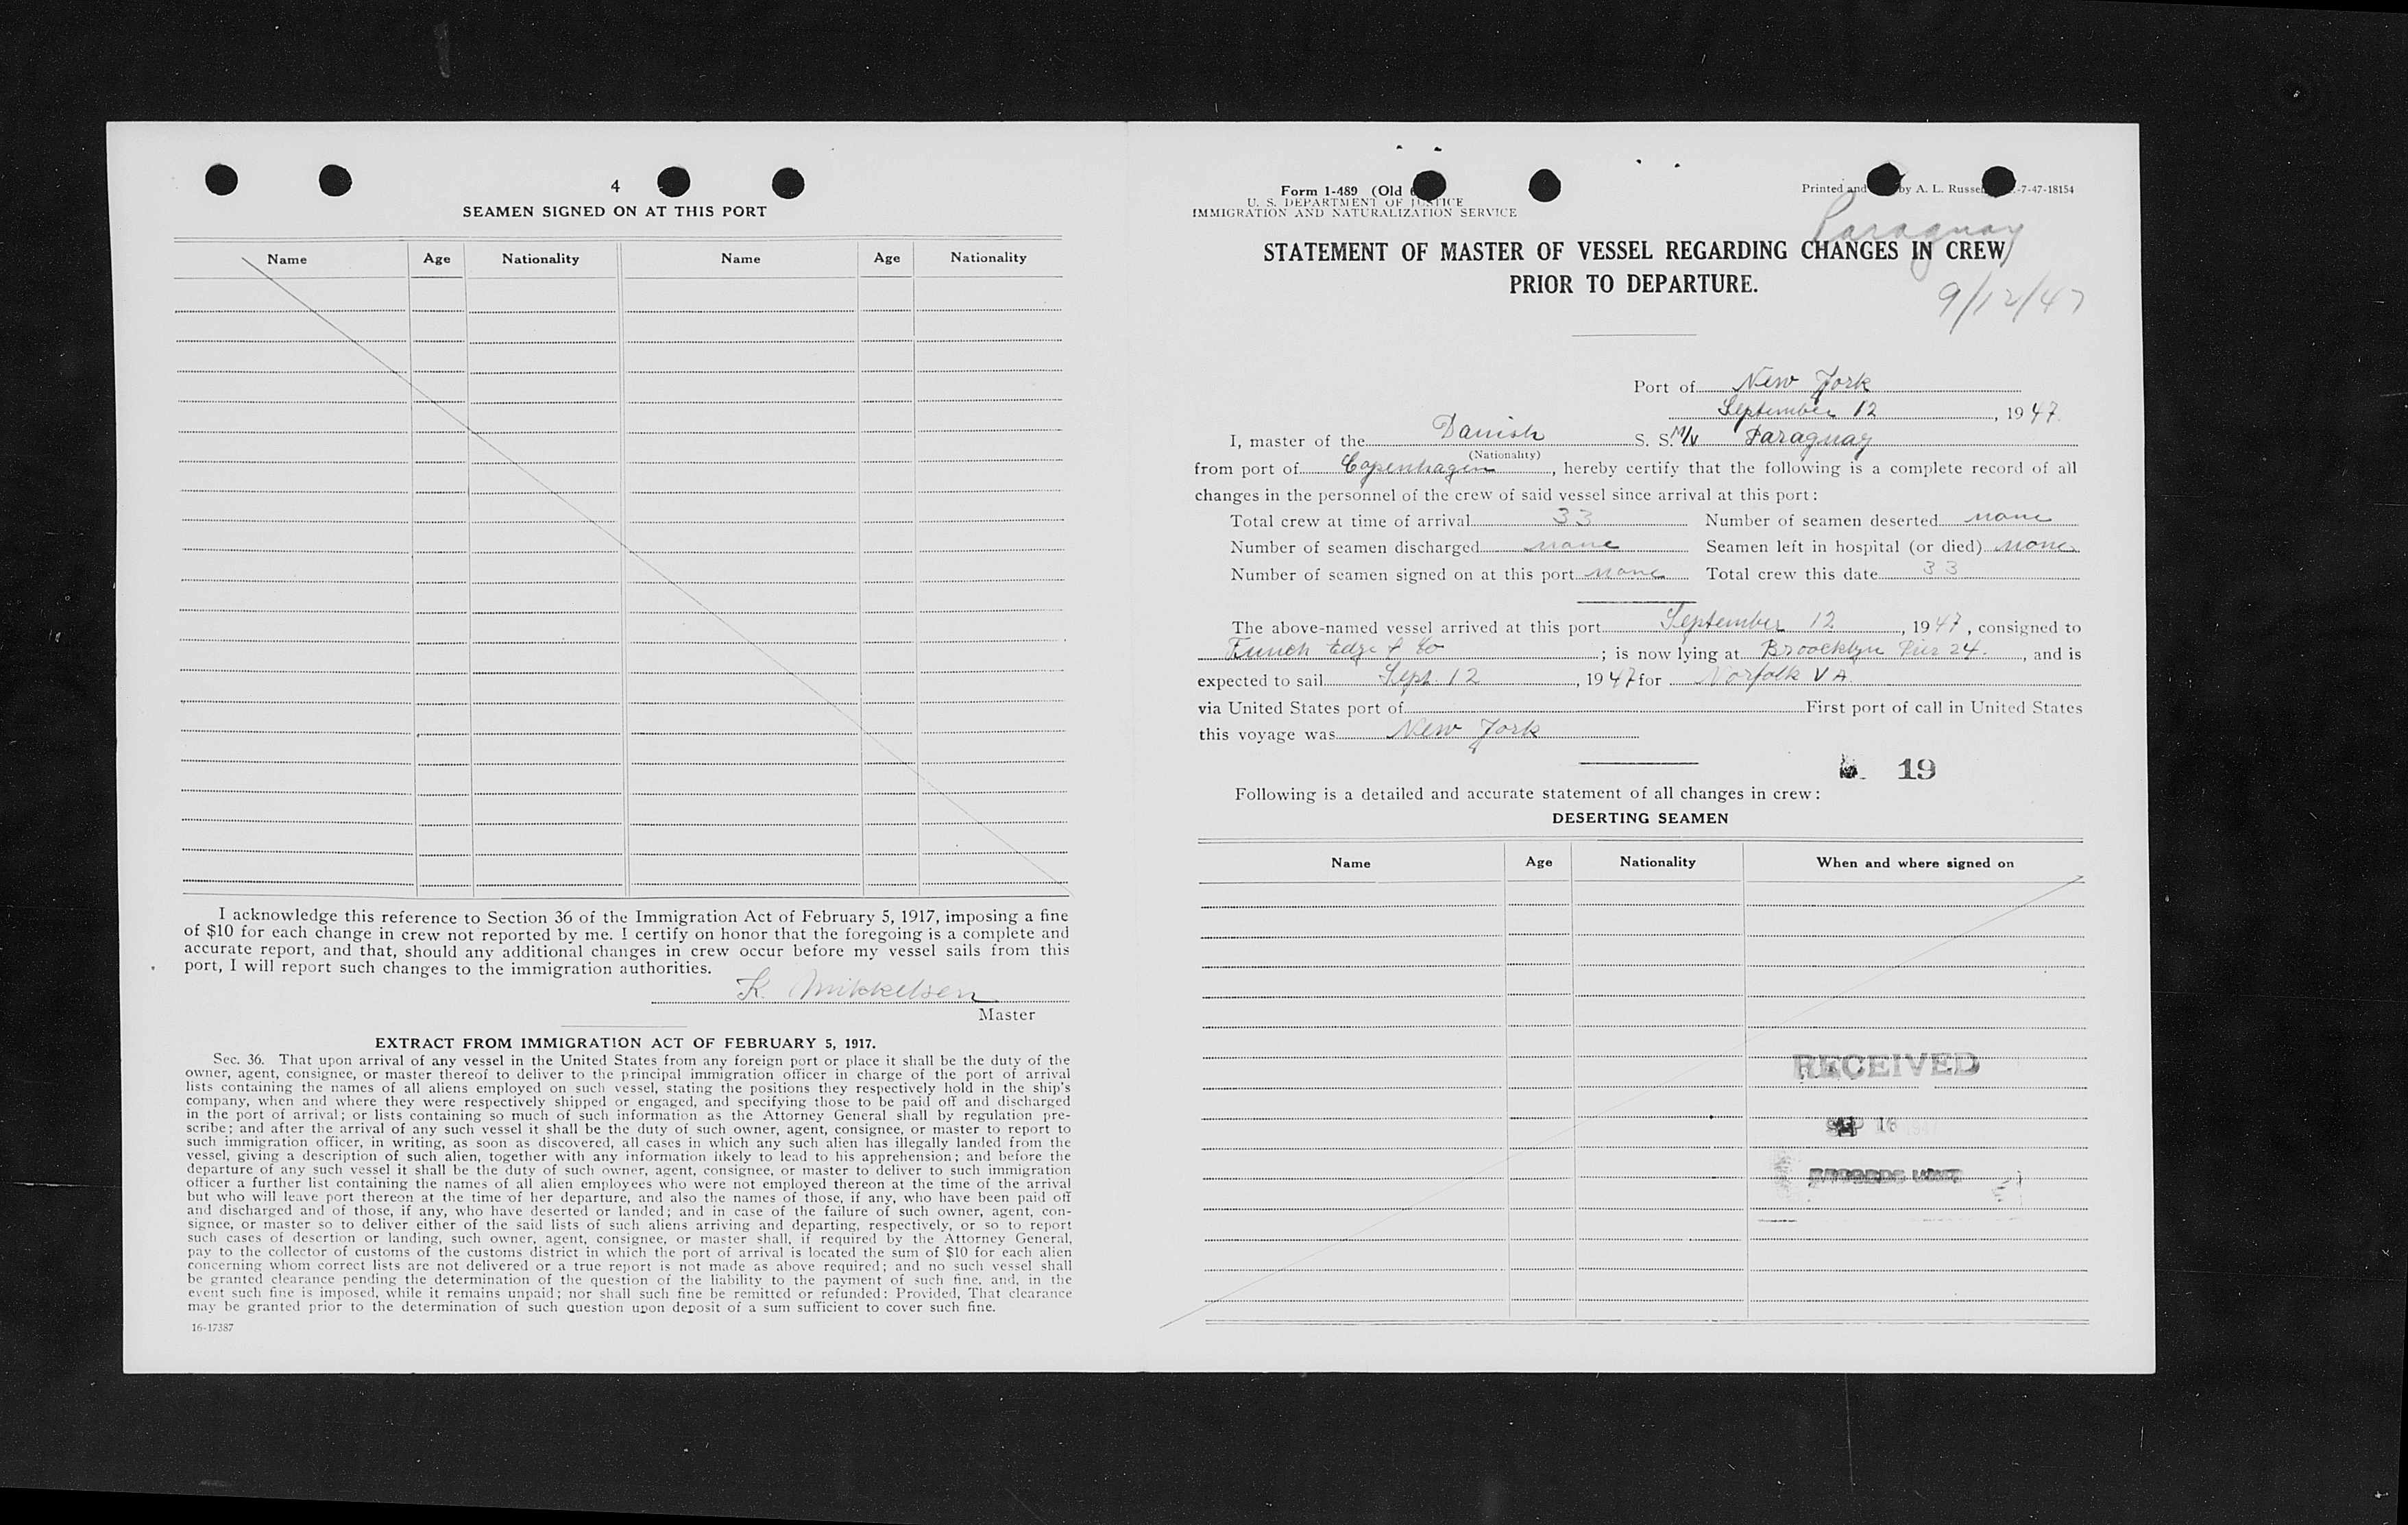 4
SEAMEN SIGNED ON AT THIS PORT
Name Age Nationality Name Age Nationality
I acknowledge this reference to Section 36 of the Immigration Act of February 5, 1917, imposing a fine
of $10 for each change in crew not reported by me. I certify on honor that the foregoing is a complete and
accurate report, and that, should any additional changes in crew occur before my vessel sails from this
port, I will report such changes to the immigration authorities.
K. Mikkelsen
Master
EXTRACT FROM IMMIGRATION ACT OF FEBRUARY 5, 1917.
Sec. 36. That upon arrival of any vessel in the United States from any foreign port or place it shall be the duty of the
owner, agent, consignee, or master thereof to deliver to the principal immigration officer in charge of the port of arrival
lists containing the names of all aliens employed on such vessel, stating the positions they respectively hold in the ship's
company, when and where they were respectively shipped or engaged, and specifying those to be paid off and discharged
in the port of arrival; or lists containing so much of such information as the Attorney General shall by regulation pre-
scribe; and after the arrival of any such vessel it shall be the duty of such owner, agent, consignee, or master to report to
such immigration officer, in writing, as soon as discovered, all cases in which any such alien has illegally landed from the
vessel, giving a description of such alien, together with any information likely to lead to his apprehension; and before the
departure of any such vessel it shall be the duty of such owner, agent, consignee, or master to deliver to such immigration
officer a further list containing the names of all alien employees who were not employed thereon at the time of the arrival
but who will leave port thereon at the time of her departure, and also the names of those, if any, who have been paid off
and discharged and of those, if any, who have deserted or landed; and in case of the failure of such owner, agent, con-
signee, or master so to deliver either of the said lists of such aliens arriving and departing, respectively, or so to report
such cases of desertion or landing, such owner, agent, consignee, or master shall, if required by the Attorney General,
pay to the collector of customs of the customs district in which the port of arrival is located the sum of $10 for each alien
concerning whom correct lists are not delivered or a true report is not made as above required; and no such vessel shall
be granted clearance pending the determination of the question of the liability to the payment of such fine, and, in the
event such fine is imposed, while it remains unpaid; nor shall such fine be remitted or refunded: Provided, That clearance
may be granted prior to the determination of such question upon deposit of a sum sufficient to cover such fine.
16-17387
Form 1-489 (Old
U. S. DEPARTMENT OF JUSTICE
IMMIGRATION AND NATURALIZATION SERVICE
Printed and by A. L. Russe -7-47-18154
Paraguay
STATEMENT OF MASTER OF VESSEL REGARDING CHANGES IN CREW
PRIOR TO DEPARTURE.
9/12/47
Port of New York
September 12, 1947.
I, master of the Danish S. S. M/V Paraguay
(Nationality)
from port of Copenhagen, hereby certify that the following is a complete record of all
changes in the personnel of the crew of said vessel since arrival at this port:
Total crew at time of arrival 33 Number of seamen deserted none
Number of seamen discharged none Seamen left in hospital (or died) none
Number of seamen signed on at this port none Total crew this date 33
The above-named vessel arrived at this port September 12, 1947, consigned to
Funch Edge & Co; is now lying at Broocklyn Pier 24., and is
expected to sail Sept. 12, 1947 for Norfolk VA.
via United States port of First port of call in United States
this voyage was New York
19
Following is a detailed and accurate statement of all changes in crew:
DESERTING SEAMEN
Name Age Nationality When and where signed on
RECEIVED
SEP 16 1947
RECORDS UNIT